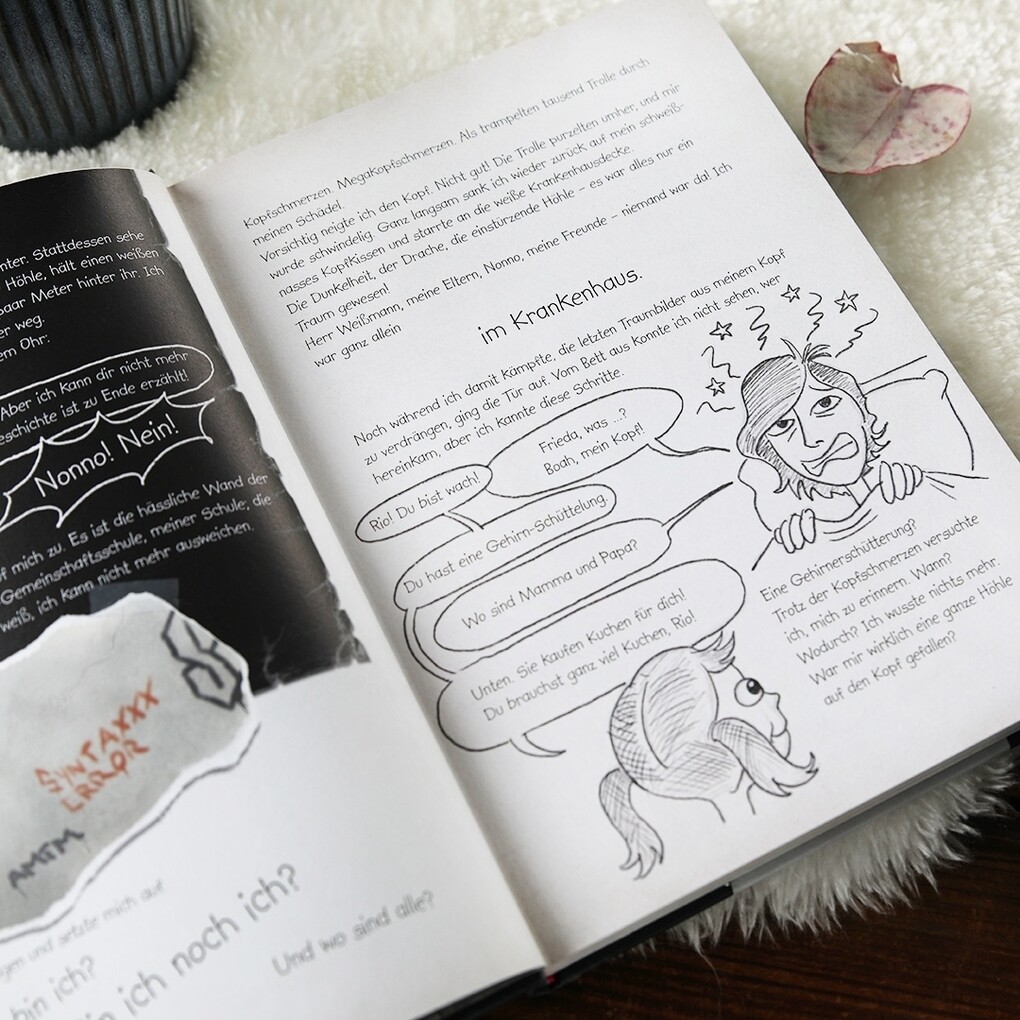 nter. Stattdessen sehe
Höhle, hält einen weißen
paar Meter hinter ihr. Ich
er weg.
em Ohr:
Aber ich kann dir nicht mehr
eschichte ist zu Ende erzählt!
Nonno! Nein!
f mich zu. Es ist die hässliche Wand der
Gemeinschaftsschule, meiner Schule; die
weiß, ich kann nicht mehr ausweichen.
SYNTAXXX
ERROR
AMTM
gen und setzte mich auf
bin ich?
in ich noch ich?
Und wo sind alle?
Kopfschmerzen. Megakopfschmerzen. Als trampelten tausend Trolle durch
meinen Schädel.
Vorsichtig neigte ich den Kopf. Nicht gut! Die Trolle purzelten umher, und mir
wurde schwindelig. Ganz langsam sank ich wieder zurück auf mein schweiß-
nasses Kopfkissen und starrte an die weiße Krankenhausdecke.
Die Dunkelheit, der Drache, die einstürzende Höhle – es war alles nur ein
Traum gewesen!
Herr Weißmann, meine Eltern, Nonno, meine Freunde – niemand war da! Ich
war ganz allein
im Krankenhaus.
Noch während ich damit kämpfte, die letzten Traumbilder aus meinem Kopf
zu verdrängen, ging die Tür auf. Vom Bett aus konnte ich nicht sehen, wer
hereinkam, aber ich kannte diese Schritte.
Rio! Du bist wach!
Frieda, was ...?
Boah, mein Kopf!
Du hast eine Gehirn-Schüttelung.
Wo sind Mamma und Papa?
Unten. Sie kaufen Kuchen für dich!
Du brauchst ganz viel Kuchen, Rio!
Eine Gehirnerschütterung?
Trotz der Kopfschmerzen versuchte
ich, mich zu erinnern. Wann?
Wodurch? Ich wusste nichts mehr.
War mir wirklich eine ganze Höhle
auf den Kopf gefallen?